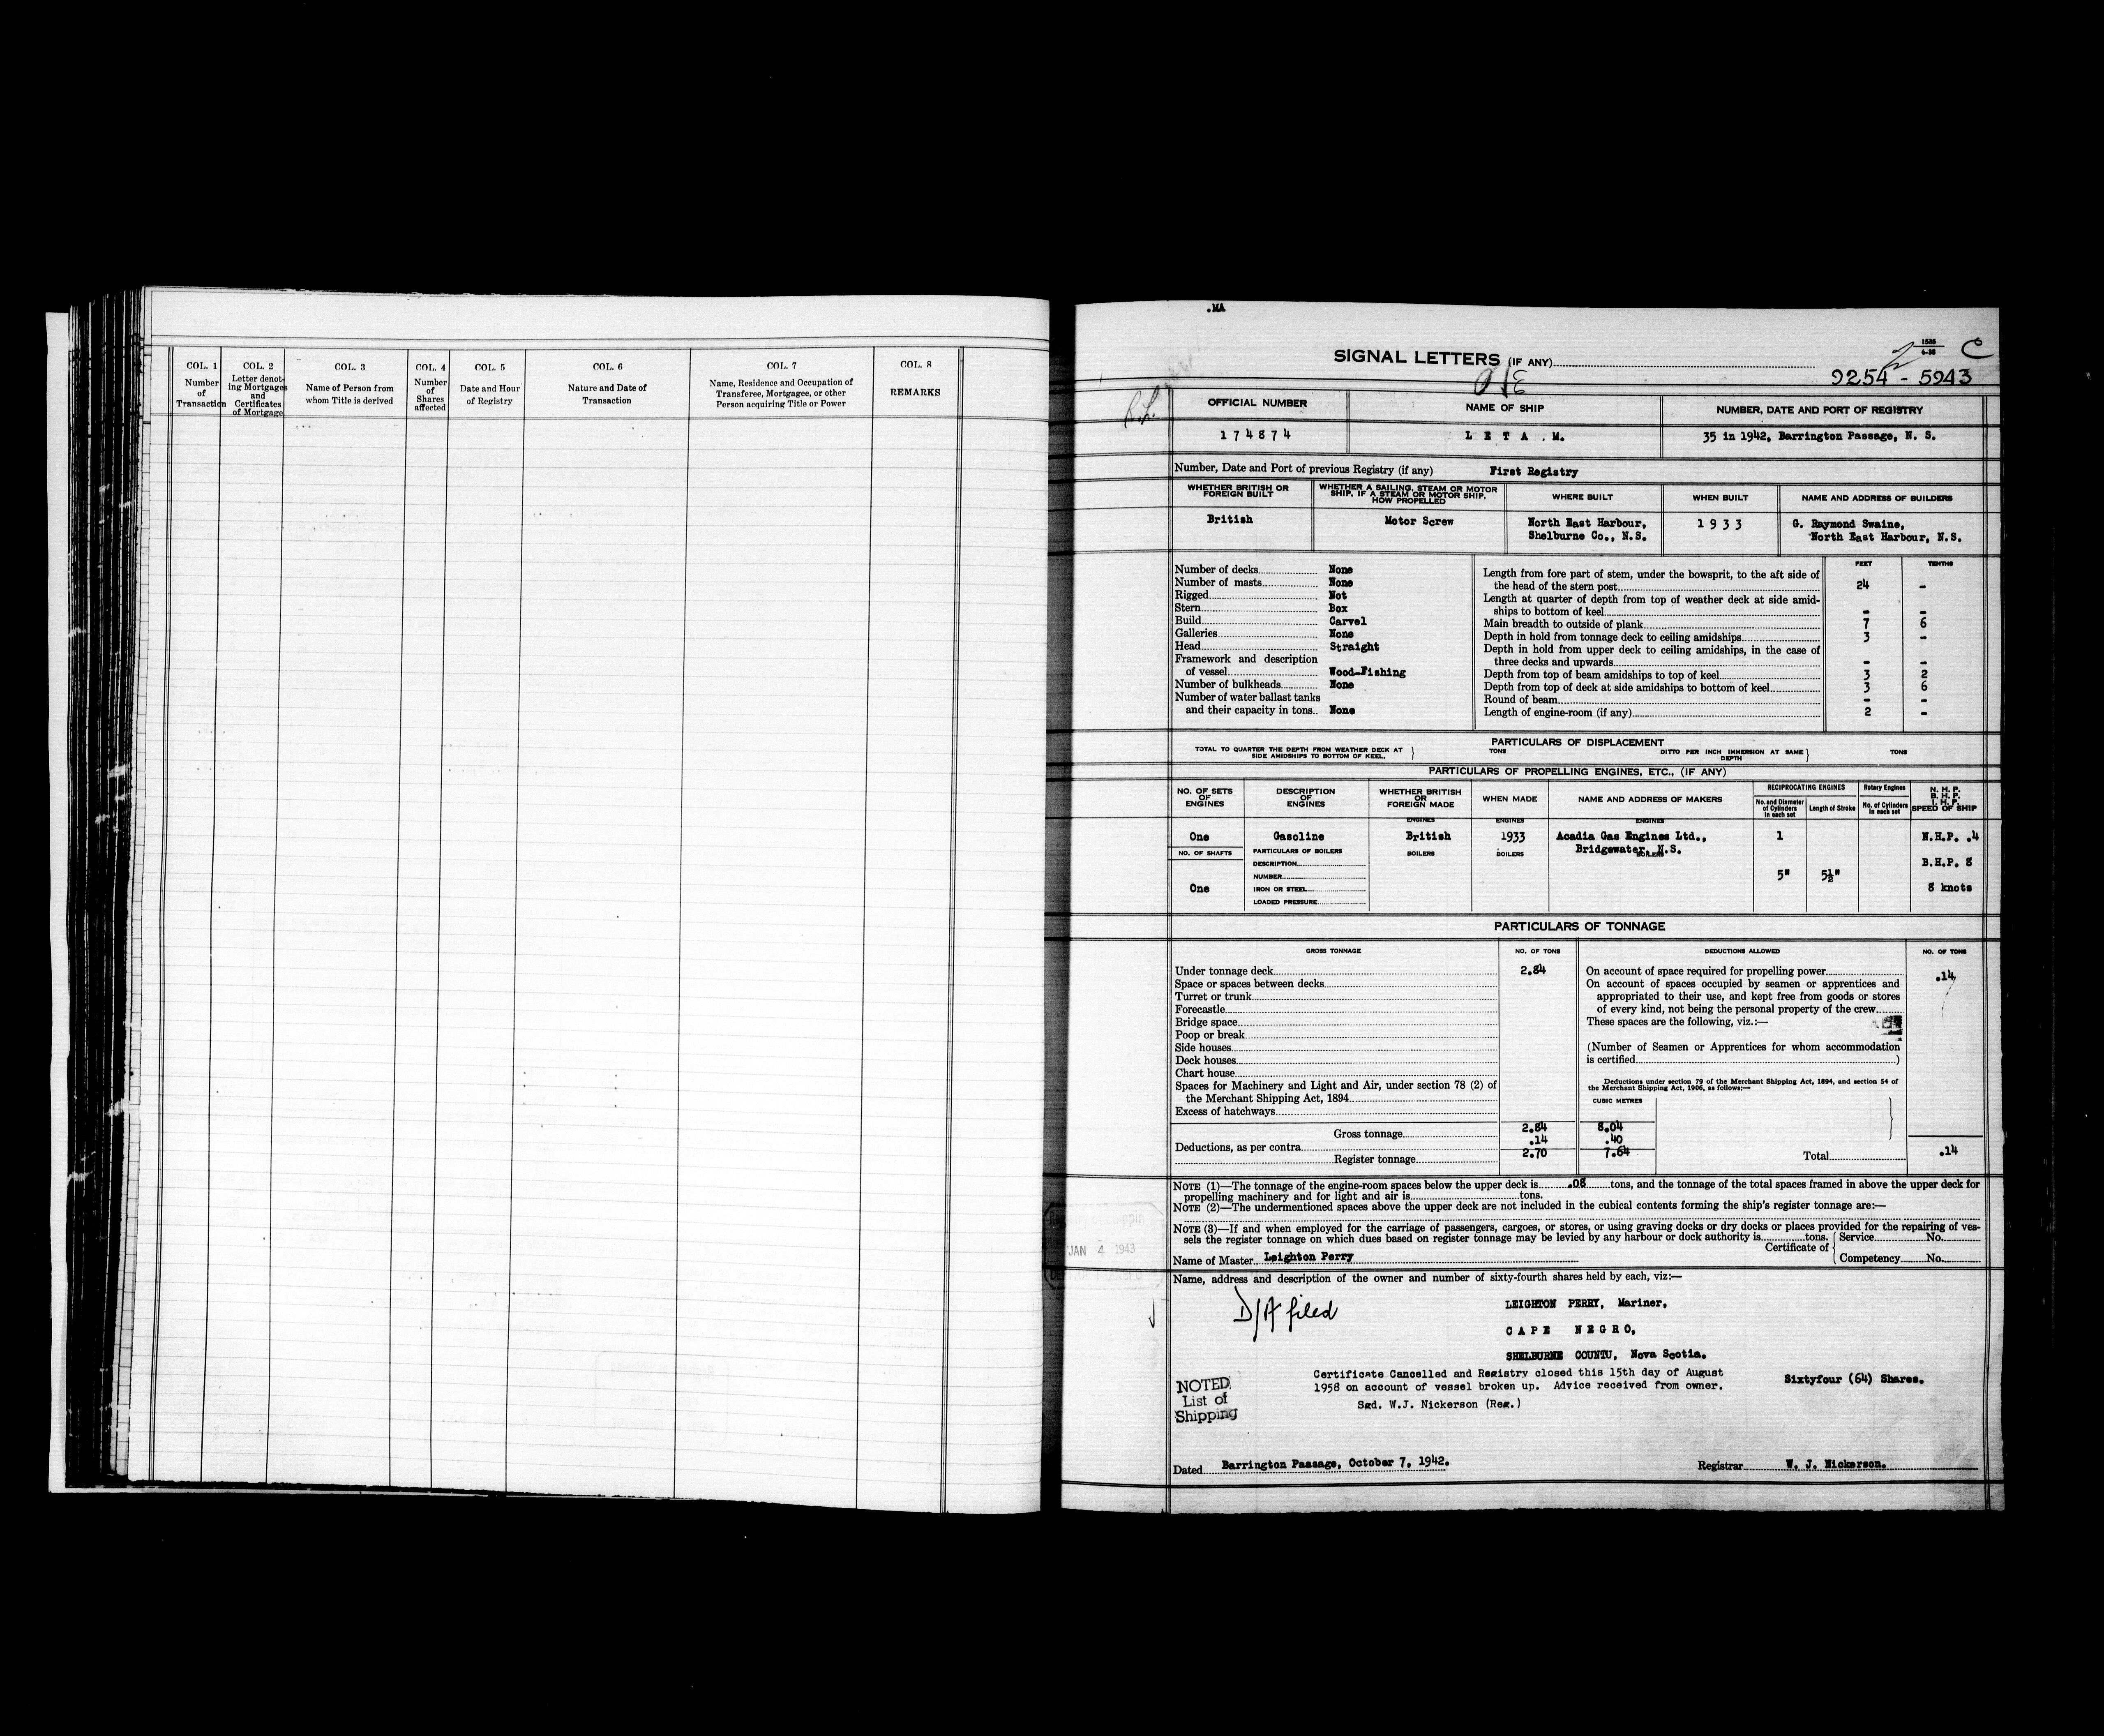 COL. 1 COL. 2 COL. 3 COL. 4 COL. 5 COL. 6 COL. 7 COL. 8
Number
of
Transaction
Letter denot-
ing Mortgages
and
Certificates
of Mortgage
Name of Person from
whom Title is derived
Number
of
Shares
affected
Date and Hour
of Registry
Nature and Date of
Transaction
Name, Residence and Occupation of
Transferee, Mortgagee, or other
Person acquiring Title or Power
REMARKS
.MA
SIGNAL LETTERS (IF ANY)
1535
6-38
C
9254 - 5943
OFFICIAL NUMBER
NAME OF SHIP
NUMBER, DATE AND PORT OF REGISTRY
174874
LETA M.
35 in 1942, Barrington Passage, N. S.
Number, Date and Port of previous Registry (if any) First Registry
WHETHER BRITISH OR
FOREIGN BUILT
WHETHER A SAILING, STEAM OR MOTOR
SHIP, IF A STEAM OR MOTOR SHIP,
HOW PROPELLED
WHERE BUILT
WHEN BUILT
NAME AND ADDRESS OF BUILDERS
British
Motor Screw
North East Harbour,
Shelburne Co., N.S.
1933
G. Raymond Swaine,
North East Harbour, N.S.
Number of decks None
Number of masts None
Rigged Not
Stern Box
Build Carvel
Galleries None
Head Straight
Framework and description
of vessel Wood-Fishing
Number of bulkheads None
Number of water ballast tanks
and their capacity in tons.. None
FEET TENTHS
Length from fore part of stem, under the bowsprit, to the aft side of
the head of the stern post 24 -
Length at quarter of depth from top of weather deck at side amid-
ships to bottom of keel - -
Main breadth to outside of plank 7 6
Depth in hold from tonnage deck to ceiling amidships 3 -
Depth in hold from upper deck to ceiling amidships, in the case of
three decks and upwards - -
Depth from top of beam amidships to top of keel 3 2
Depth from top of deck at side amidships to bottom of keel 3 6
Round of beam - -
Length of engine-room (if any) 2 -
PARTICULARS OF DISPLACEMENT
TOTAL TO QUARTER THE DEPTH FROM WEATHER DECK AT
SIDE AMIDSHIPS TO BOTTOM OF KEEL.
TONS
DITTO PER INCH IMMERSION AT SAME
DEPTH
TONS
PARTICULARS OF PROPELLING ENGINES, ETC., (IF ANY)
NO. OF SETS
OF
ENGINES
DESCRIPTION
OF
ENGINES
WHETHER BRITISH
OR
FOREIGN MADE
WHEN MADE
NAME AND ADDRESS OF MAKERS
RECIPROCATING ENGINES
No. and Diameter
of Cylinders
in each set
Length of Stroke
Rotary Engines
No. of Cylinders
in each set
N. H. P.
B. H. P.
I. H. P.
SPEED OF SHIP
ENGINES ENGINES ENGINES
One Gasoline British 1933 Acadia Gas Engines Ltd., 1 N.H.P. .4
Bridgewater, N.S.
NO. OF SHAFTS PARTICULARS OF BOILERS BOILERS BOILERS BOILERS
DESCRIPTION
B.H.P. 8
NUMBER
5" 5½"
One IRON OR STEEL 8 knots
LOADED PRESSURE
PARTICULARS OF TONNAGE
GROSS TONNAGE NO. OF TONS DEDUCTIONS ALLOWED NO. OF TONS
Under tonnage deck 2.84
Space or spaces between decks
Turret or trunk
Forecastle
Bridge space
Poop or break
Side houses
Deck houses
Chart house
Spaces for Machinery and Light and Air, under section 78 (2) of
the Merchant Shipping Act, 1894
Excess of hatchways
Gross tonnage 2.84 8.04
Deductions, as per contra .14 .40
Register tonnage 2.70 7.64
On account of space required for propelling power .14
On account of spaces occupied by seamen or apprentices and
appropriated to their use, and kept free from goods or stores
of every kind, not being the personal property of the crew
These spaces are the following, viz.:—
(Number of Seamen or Apprentices for whom accommodation
is certified )
Deductions under section 79 of the Merchant Shipping Act, 1894, and section 54 of
the Merchant Shipping Act, 1906, as follows:—
CUBIC METRES
Total .14
NOTE (1)—The tonnage of the engine-room spaces below the upper deck is .08 tons, and the tonnage of the total spaces framed in above the upper deck for
propelling machinery and for light and air is tons.
NOTE (2)—The undermentioned spaces above the upper deck are not included in the cubical contents forming the ship's register tonnage are:—
NOTE (3)—If and when employed for the carriage of passengers, cargoes, or stores, or using graving docks or dry docks or places provided for the repairing of ves-
sels the register tonnage on which dues based on register tonnage may be levied by any harbour or dock authority is tons.
Certificate of { Service No.
Competency No.
JAN 4 1943
Name of Master Leighton Perry
Name, address and description of the owner and number of sixty-fourth shares held by each, viz:—
D/A filed
LEIGHTON PERRY, Mariner,
CAPE NEGRO,
SHELBURNE COUNTU, Nova Scotia.
Certificate Cancelled and Registry closed this 15th day of August
1958 on account of vessel broken up. Advice received from owner.
Sgd. W.J. Nickerson (Reg.)
Sixtyfour (64) Shares.
NOTED
List of
Shipping
Dated Barrington Passage, October 7, 1942.
Registrar W. J. Nickerson.